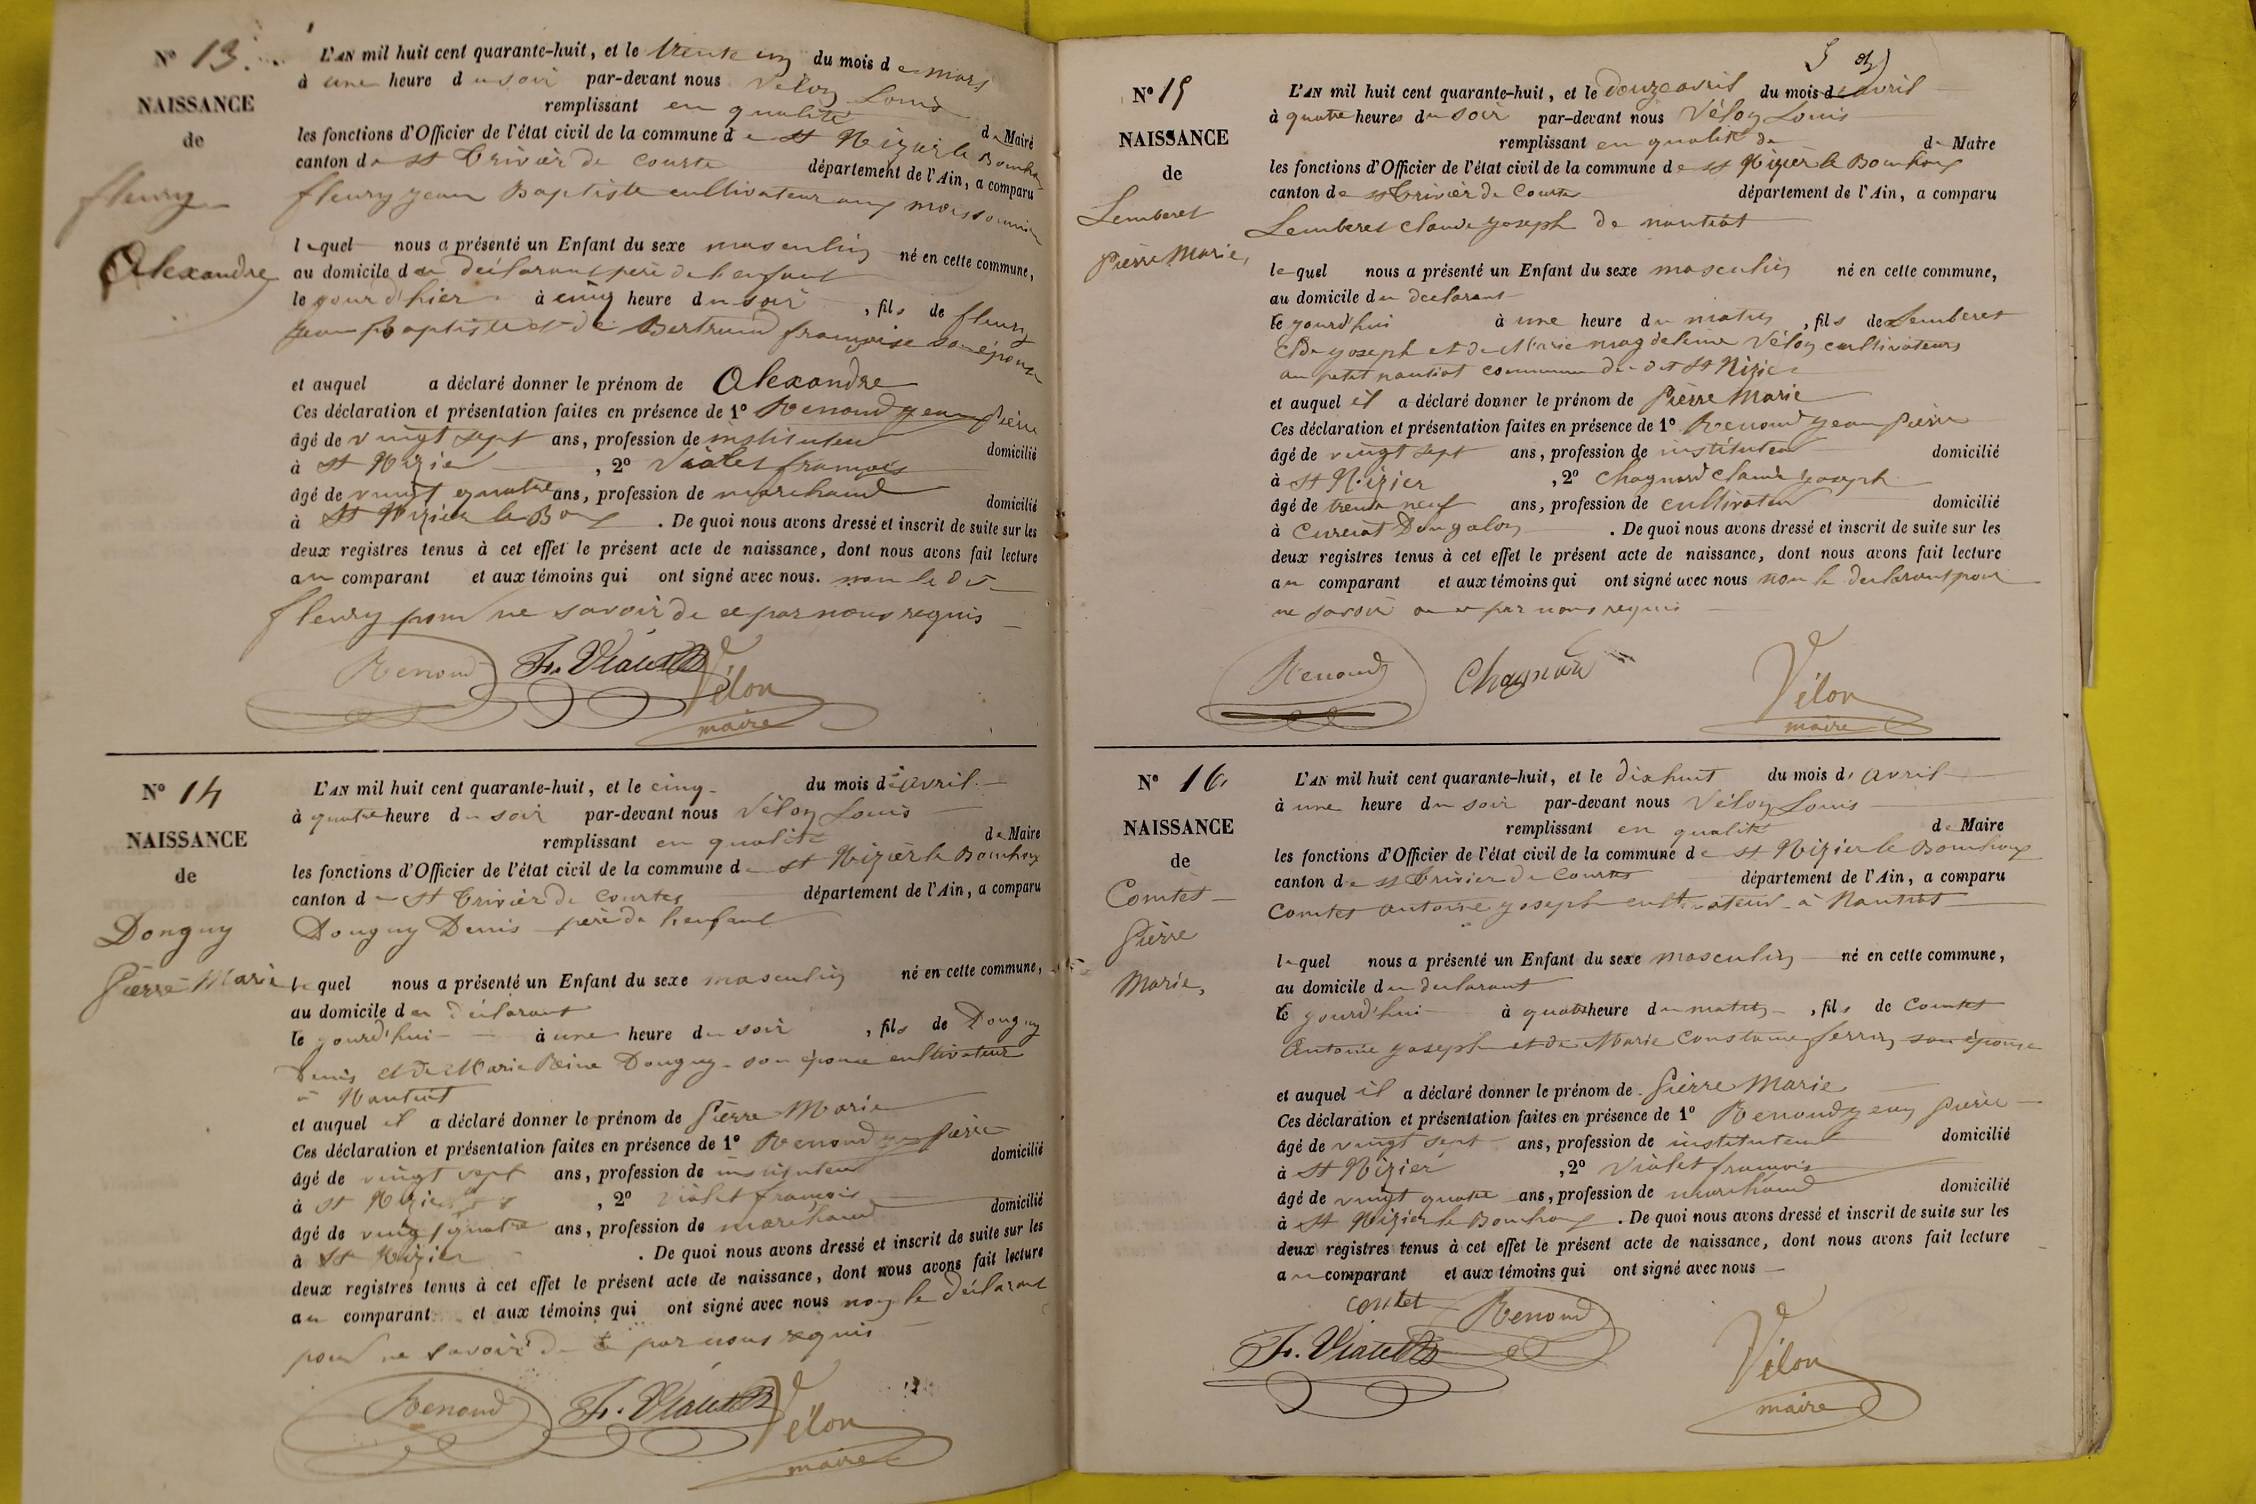 N° 13.
NAISSANCE
de
fleury
Alexandre
L'AN mil huit cent quarante-huit, et le trente un du mois de mars
à une heure du soir par-devant nous Vélon Louis
remplissant en qualité de Maire
les fonctions d'Officier de l'état civil de la commune de St Nizier le Bouchoux
canton de St Trivier de Courtes département de l'Ain, a comparu
fleury jean Baptiste cultivateur aux
lequel nous a présenté un Enfant du sexe masculin né en cette commune,
au domicile du déclarant père de l'enfant
le jour d'hier à cinq heure du soir, fils de fleury
jean Baptiste et de Bertrand françoise son épouse
et auquel a déclaré donner le prénom de Alexandre
Ces déclaration et présentation faites en présence de 1° Renoud jean pierre
âgé de vingt sept ans, profession de instituteur domicilié
à St Nizier, 2° Violet françois
âgé de vingt quatre ans, profession de marchand domicilié
à St Nizier le Boux. De quoi nous avons dressé et inscrit de suite sur les
deux registres tenus à cet effet le présent acte de naissance, dont nous avons fait lecture
au comparant et aux témoins qui ont signé avec nous. non le dit
fleury pour ne savoir de ce par nous requis
Renoud Fr. Violet Vélon
maire
N° 14
NAISSANCE
de
Donguy
Pierre-Marie
L'AN mil huit cent quarante-huit, et le cinq du mois d'avril
à quatre heure du soir par-devant nous Vélon Louis
remplissant en qualité de Maire
les fonctions d'Officier de l'état civil de la commune de St Nizier le Bouchoux
canton de St Trivier de Courtes département de l'Ain, a comparu
Donguy Denis père de l'enfant
lequel nous a présenté un Enfant du sexe masculin né en cette commune,
au domicile du déclarant
le jourd'hui à une heure du soir, fils de Donguy
Denis et de Marie Reine Donguy son épouse cultivateur
à Nantiat
et auquel il a déclaré donner le prénom de Pierre Marie
Ces déclaration et présentation faites en présence de 1° Renoud jean pierre
âgé de vingt sept ans, profession de instituteur domicilié
à St Nizier, 2° Violet françois
âgé de vingt quatre ans, profession de marchand domicilié
à St Nizier. De quoi nous avons dressé et inscrit de suite sur les
deux registres tenus à cet effet le présent acte de naissance, dont nous avons fait lecture
au comparant et aux témoins qui ont signé avec nous non le déclarant
pour ne savoir de ce par nous requis
Renoud Fr. Violet Vélon
maire
5
N° 15
NAISSANCE
de
Lemberet
Pierre Marie,
L'AN mil huit cent quarante-huit, et le douze avril du mois d'avril
à quatre heures du soir par-devant nous Vélon Louis
remplissant en qualité de de Maire
les fonctions d'Officier de l'état civil de la commune de St Nizier le Bouchoux
canton de St Trivier de Courtes département de l'Ain, a comparu
Lemberet claude joseph de nantiat
lequel nous a présenté un Enfant du sexe masculin né en cette commune,
au domicile du déclarant
le jourd'hui à une heure du matin, fils de Lemberet
Cde joseph et de Marie magdeleine Vélon cultivateurs
au petit nantiat commune du dit St Nizier
et auquel il a déclaré donner le prénom de Pierre Marie
Ces déclaration et présentation faites en présence de 1° Renoud jean pierre
âgé de vingt sept ans, profession de instituteur domicilié
à St Nizier, 2° Chagnard Claude joseph
âgé de trente neuf ans, profession de cultivateur domicilié
à Curciat Dongalon. De quoi nous avons dressé et inscrit de suite sur les
deux registres tenus à cet effet le présent acte de naissance, dont nous avons fait lecture
au comparant et aux témoins qui ont signé avec nous non le déclarant pour
ne savoir de ce par nous requis
Renoud Chagnard Vélon
maire
N° 16
NAISSANCE
de
Comtet
Pierre
Marie,
L'AN mil huit cent quarante-huit, et le dix huit du mois d'avril
à une heure du soir par-devant nous Vélon Louis
remplissant en qualité de Maire
les fonctions d'Officier de l'état civil de la commune de St Nizier le Bouchoux
canton de St Trivier de Courtes département de l'Ain, a comparu
Comtet antoine joseph cultivateur à Nantiat
lequel nous a présenté un Enfant du sexe masculin né en cette commune,
au domicile du déclarant
le jourd'hui à quatre heure du matin, fils de Comtet
Antoine joseph et de Marie Constance ferrin son épouse
et auquel il a déclaré donner le prénom de Pierre Marie
Ces déclaration et présentation faites en présence de 1° Renoud jean pierre
âgé de vingt sept ans, profession de instituteur domicilié
à St Nizier, 2° Violet françois
âgé de vingt quatre ans, profession de marchand domicilié
à St Nizier le Bouchoux. De quoi nous avons dressé et inscrit de suite sur les
deux registres tenus à cet effet le présent acte de naissance, dont nous avons fait lecture
au comparant et aux témoins qui ont signé avec nous
comtet Renoud
Fr. Violet Vélon
maire